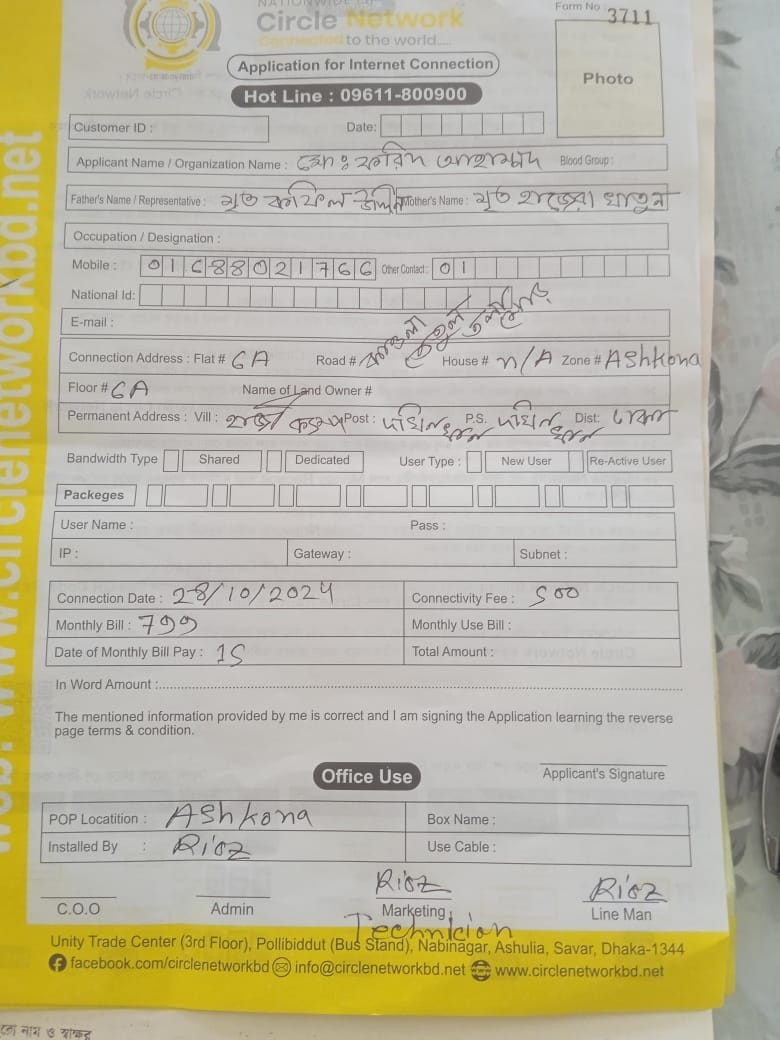 Circle Network
Connected to the world....
Form No 3711
Photo
Application for Internet Connection
Hot Line : 09611-800900
Customer ID :
Date:
Applicant Name / Organization Name : মোঃ ফরিদ আহাম্মদ Blood Group :
Father's Name / Representative : মৃত Mother's Name : মৃত হাজেরা খাতুন
Occupation / Designation :
Mobile : 01688021766 Other Contact : 01
National Id:
E-mail :
Connection Address : Flat # 6A Road # House # n/A Zone # Ashkona
Floor # 6A Name of Land Owner #
Permanent Address : Vill : Post : P.S. Dist: ঢাকা
Bandwidth Type Shared Dedicated User Type : New User Re-Active User
Packeges
User Name : Pass :
IP : Gateway : Subnet :
Connection Date : 28/10/2024 Connectivity Fee : 500
Monthly Bill : 799 Monthly Use Bill :
Date of Monthly Bill Pay : 15 Total Amount :
In Word Amount :
The mentioned information provided by me is correct and I am signing the Application learning the reverse
page terms & condition.
Applicant's Signature
Office Use
POP Locatition : Ashkona Box Name :
Installed By : Rioz Use Cable :
Rioz Rioz
C.O.O Admin Marketing Line Man
Technician
Unity Trade Center (3rd Floor), Pollibiddut (Bus Stand), Nabinagar, Ashulia, Savar, Dhaka-1344
facebook.com/circlenetworkbd info@circlenetworkbd.net www.circlenetworkbd.net
web: www.circlenetworkbd.net
নাম ও স্বাক্ষর